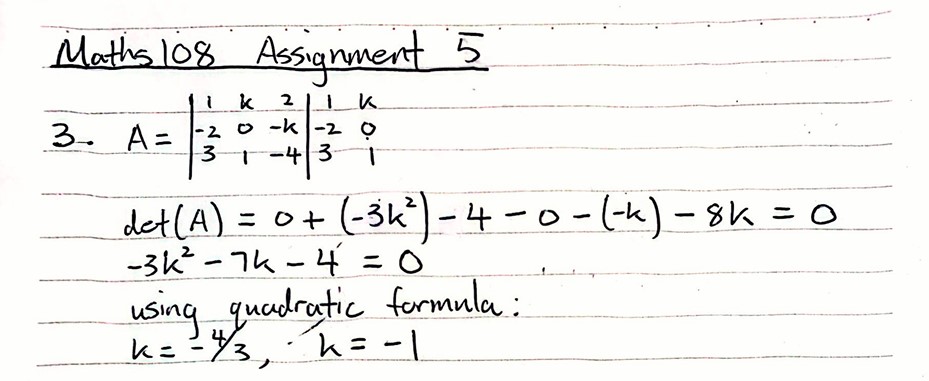 Maths 108 Assignment 5
3. A = | 1 k 2 | 1 k
| -2 0 -k | -2 0
| 3 1 -4 | 3 1
det(A) = 0 + (-3k²) - 4 - 0 - (-k) - 8k = 0
-3k² - 7k - 4 = 0
using quadratic formula:
k = -4/3, k = -1